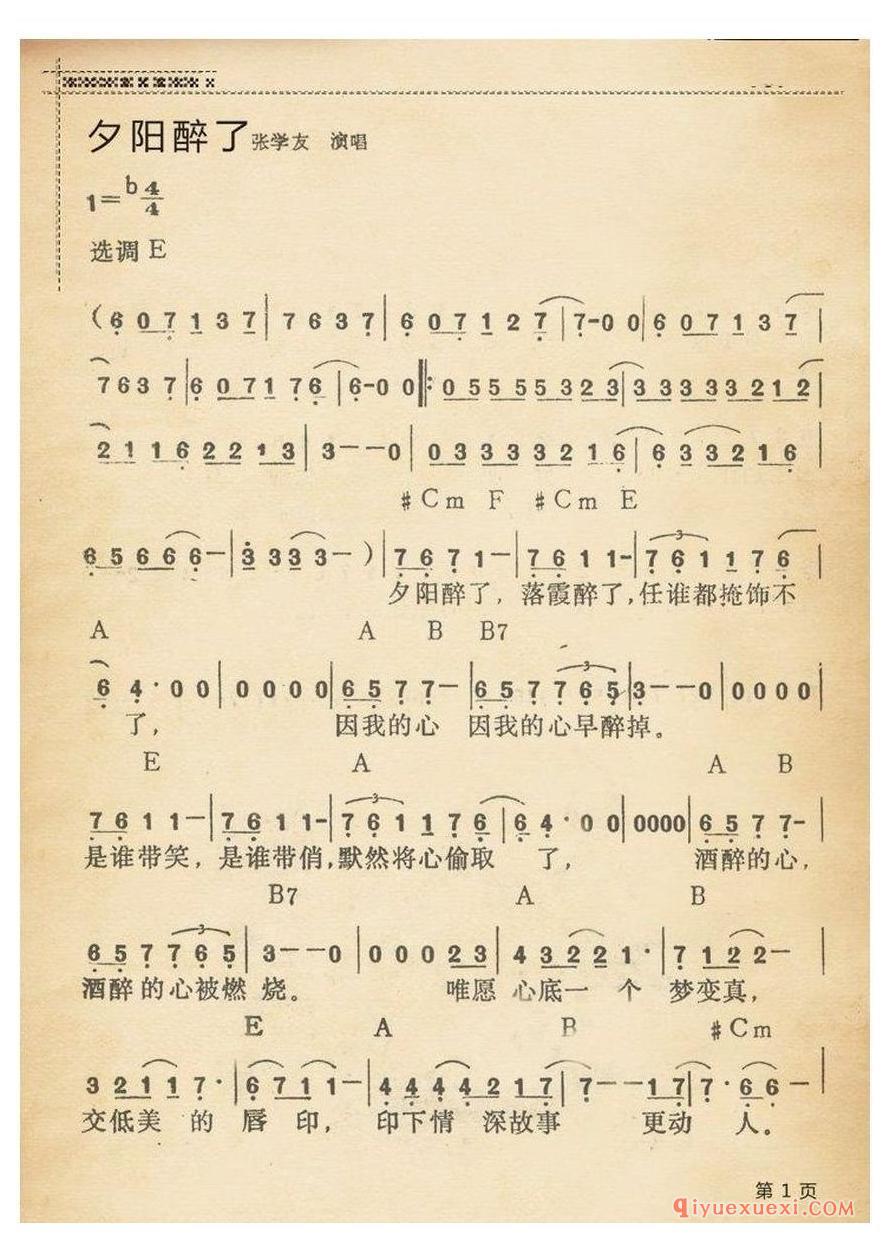 夕阳醉了 张学友 演唱
1=b 4/4
选调 E
(6 0 7 1 3 7 | 7 6 3 7 | 6 0 7 1 2 7 | 7-0 0 | 6 0 7 1 3 7 |
7 6 3 7 | 6 0 7 1 7 6 | 6-0 0 |: 0 5 5 5 5 3 2 3 | 3 3 3 3 3 2 1 2 |
2 1 1 6 2 2 1 3 | 3--0 | 0 3 3 3 3 2 1 6 | 6 3 3 2 1 6 |
#Cm F #Cm E
6 5 6 6 6 6- | 3 3 3 3- ) | 7 6 7 1- | 7 6 1 1- | 7 6 1 1 7 6 |
夕阳醉了, 落霞醉了,任谁都掩饰不
A A B B7
6 4·0 0 | 0 0 0 0 | 6 5 7 7- | 6 5 7 7 6 5 | 3--0 | 0 0 0 0 |
了, 因我的心 因我的心早醉掉。
E A A B
7 6 1 1- | 7 6 1 1- | 7 6 1 1 7 6 | 6 4·0 0 | 0000 | 6 5 7 7- |
是谁带笑, 是谁带俏,默然将心偷取 了, 酒醉的心,
B7 A B
6 5 7 7 6 5 | 3--0 | 0 0 0 2 3 | 4 3 2 2 1· | 7 1 2 2- |
酒醉的心被燃 烧。 唯愿 心底一 个 梦变真,
E A B #Cm
3 2 1 1 7· | 6 7 1 1- | 4 4 4 4 2 1 7 | 7--1 7 | 7·6 6- |
交低美 的 唇 印, 印下情 深故事 更动 人。
第 1 页
qiyuexuexi.COM